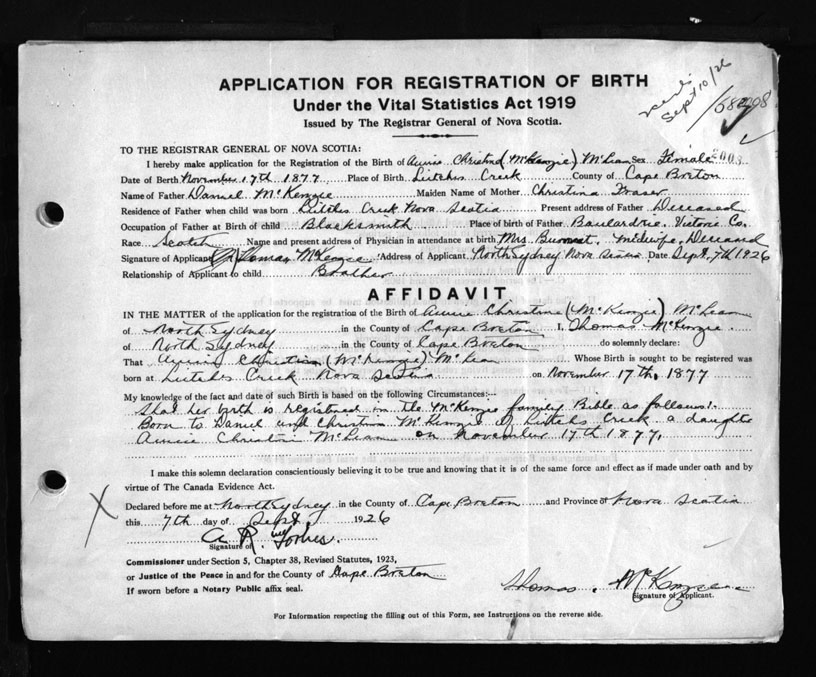 Sept 10/26
APPLICATION FOR REGISTRATION OF BIRTH
Under the Vital Statistics Act 1919
Issued by The Registrar General of Nova Scotia.
TO THE REGISTRAR GENERAL OF NOVA SCOTIA:
I hereby make application for the Registration of the Birth of Annie Christine (McKenzie) McLean Sex Female
Date of Berth November 17th 1877 Place of Birth Leitches Creek County of Cape Breton
Name of Father Daniel McKenzie Maiden Name of Mother Christina Fraser
Residence of Father when child was born Leitches Creek Nova Scotia Present address of Father Deceased
Occupation of Father at Birth of child Blacksmith Place of birth of Father Baulardrie, Victoria Co.
Race Scotch Name and present address of Physician in attendance at birth Mrs midwife, Deceased
Signature of Applicant Thomas McKenzie Address of Applicant North Sydney Nova Scotia Date Sept. 7th 1926
Relationship of Applicant to child Brother
AFFIDAVIT
IN THE MATTER of the application for the registration of the Birth of Annie Christine (McKenzie) McLean
of North Sydney in the County of Cape Breton I, Thomas McKenzie
of North Sydney in the County of Cape Breton do solemnly declare:
That Annie Christina (McKenzie) McLean Whose Birth is sought to be registered was
born at Leitches Creek Nova Scotia on November 17th, 1877
My knowledge of the fact and date of such Birth is based on the following Circumstances:—
that her birth is registered in the McKenzie family Bible as follows:-
Born to Daniel and Christina McKenzie of Leitches Creek a daughter
Annie Christine McLean on November 17th 1877.
I make this solemn declaration conscientiously believing it to be true and knowing that it is of the same force and effect as if made under oath and by
virtue of The Canada Evidence Act.
Declared before me at North Sydney in the County of Cape Breton and Province of Nova Scotia
this 7th day of Sept. 1926
A. R. Forbes.
Signature of
Commissioner under Section 5, Chapter 38, Revised Statutes, 1923,
or Justice of the Peace in and for the County of Cape Breton
If sworn before a Notary Public affix seal.
Thomas McKenzie
Signature of Applicant.
For Information respecting the filling out of this Form, see Instructions on the reverse side.